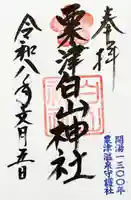 奉拝
開湯一三〇〇年
粟津温泉守護社
粟津白山神社
令和八年三月五日